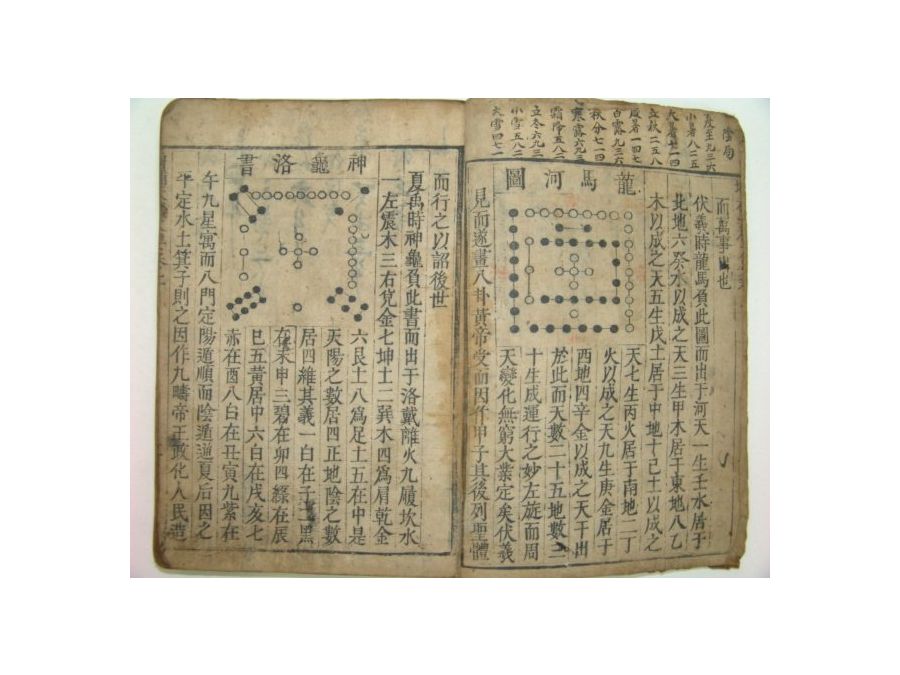 陰局
夏至九三六
小暑八二五
大暑七一四
立秋二五八
處暑一四七
白露九三六
秋分七一四
寒露六九三
霜降五八二
立冬六九三
小雪五八二
大雪四七一
龍馬河圖
而萬事出也
伏羲時龍馬負此圖而出于河天一生壬水居于
北地六癸水以成之天三生甲木居于東地八乙
木以成之天五生戊土居于中地十己土以成之
天七生丙火居于南地二丁
火以成之天九生庚金居于
西地四辛金以成之天干出
於此而天數二十五地數三
十生成運行之妙左旋而周
天變化無窮大業定矣伏羲
見而遂畫八卦黃帝受而因作甲子其後列聖體
而行之以詔後世
神龜洛書
夏禹時神龜負此書而出于洛戴離火九履坎水
一左震木三右兌金七坤土二巽木四爲肩乾金
六艮土八爲足土五在中是
天陽之數居四正地陰之數
居四維其義一白在子二黑
在未申三碧在卯四綠在辰
巳五黃居中六白在戌亥七
赤在酉八白在丑寅九紫在
午九星寓而八門定陽遁順而陰遁夏后因之
平定水土箕子則之因作九疇帝王敎化人民